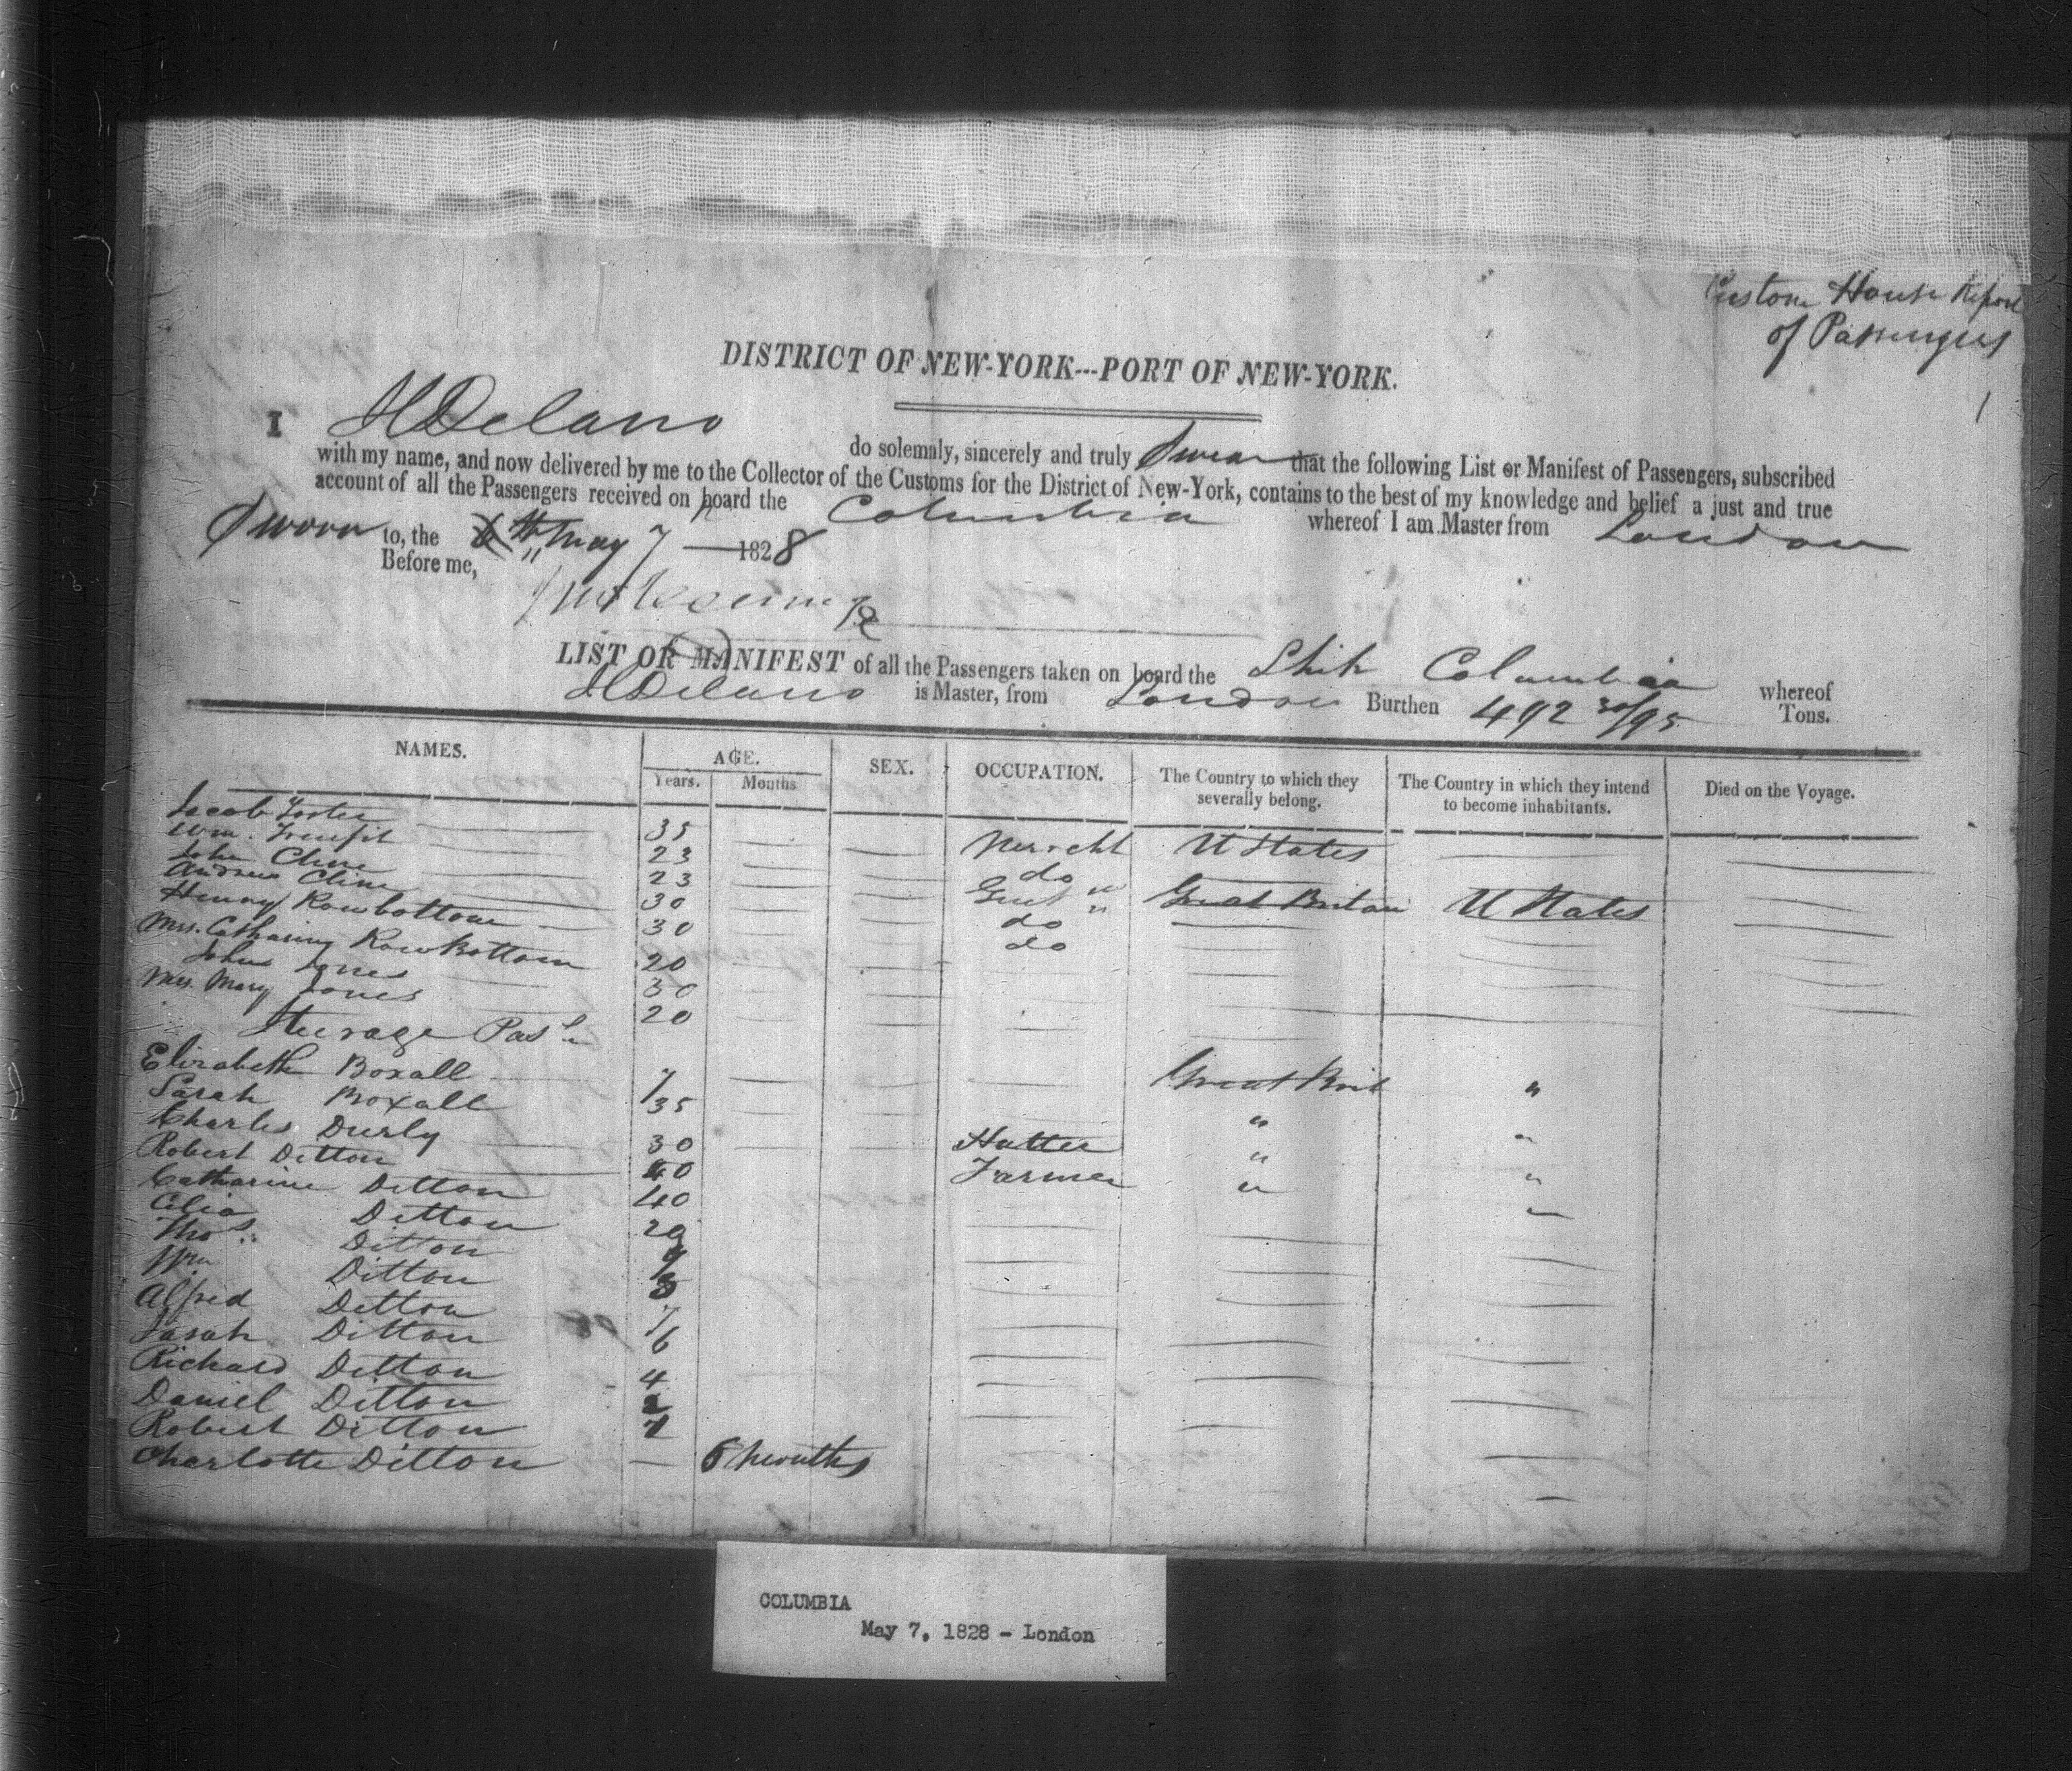 Custom House Report
of Passengers
1
DISTRICT OF NEW-YORK---PORT OF NEW-YORK.
I H Delano do solemnly, sincerely and truly Swear that the following List or Manifest of Passengers, subscribed
with my name, and now delivered by me to the Collector of the Customs for the District of New-York, contains to the best of my knowledge and belief a just and true
account of all the Passengers received on board the Columbia whereof I am Master from London
Sworn to, the 6th May 7 1828
Before me,
LIST OR MANIFEST of all the Passengers taken on board the Ship Columbia whereof
H Delano is Master, from London Burthen 492 30/95 Tons.
NAMES. AGE. SEX. OCCUPATION. The Country to which they severally belong. The Country in which they intend to become inhabitants. Died on the Voyage.
Years. Months
Jacob Foster 35 Mercht U States
Wm. 23 do "
John Cline 23 Gent " Great Britain U States
Andrew Cline 30 do
Henry Rowbottom 30 do
Mrs. Catharine RowBottom 20
John Jones 30
Mrs. Mary Jones 20
Steerage Pas
Elizabeth Boxall 7 Great Brit "
Sarah Boxall 35 " "
Charles Durly 30 Hatter " "
Robert Ditton 40 Farmer " "
Catharine Ditton 40
Celia Ditton 20
Thos. Ditton 9
Wm Ditton 8
Alfred Ditton 7
Sarah Ditton 6
Richard Ditton 4
Daniel Ditton 2
Robert Ditton
Charlotte Ditton — 6 months
COLUMBIA
May 7, 1828 - London